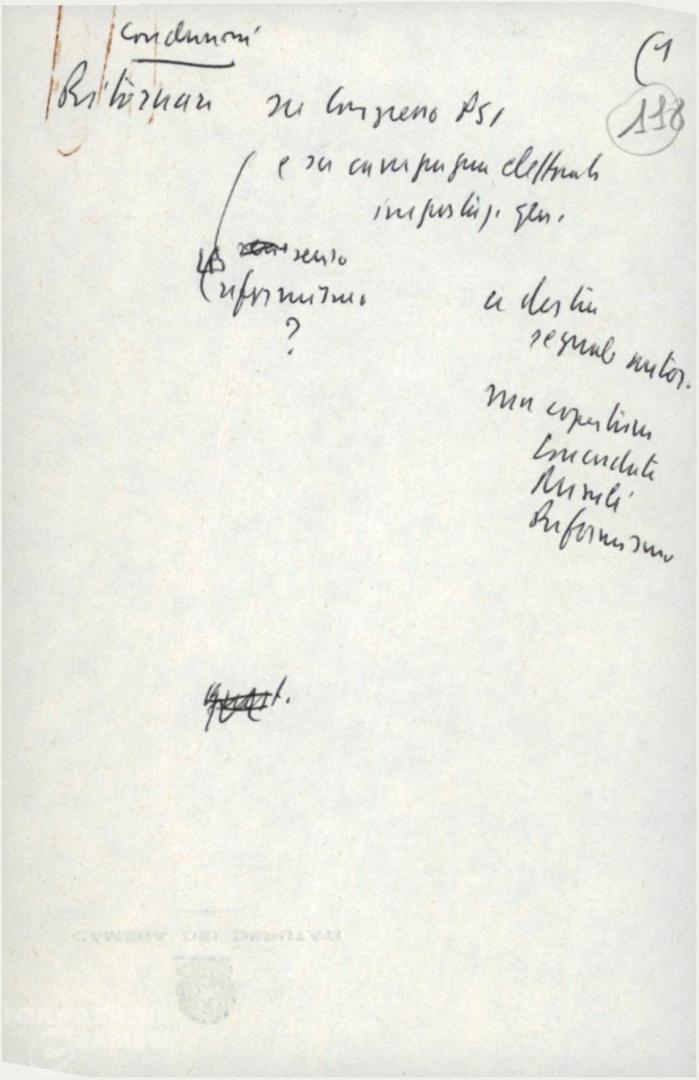 Condusioni
(1
118
Ritornare su Congresso PSI
e su campagna elettorale
impostaz. gen.
senso
riformismo
?
a destra
segnale
ma copertura
Riformismo
CAMERA DEI DEPUTATI